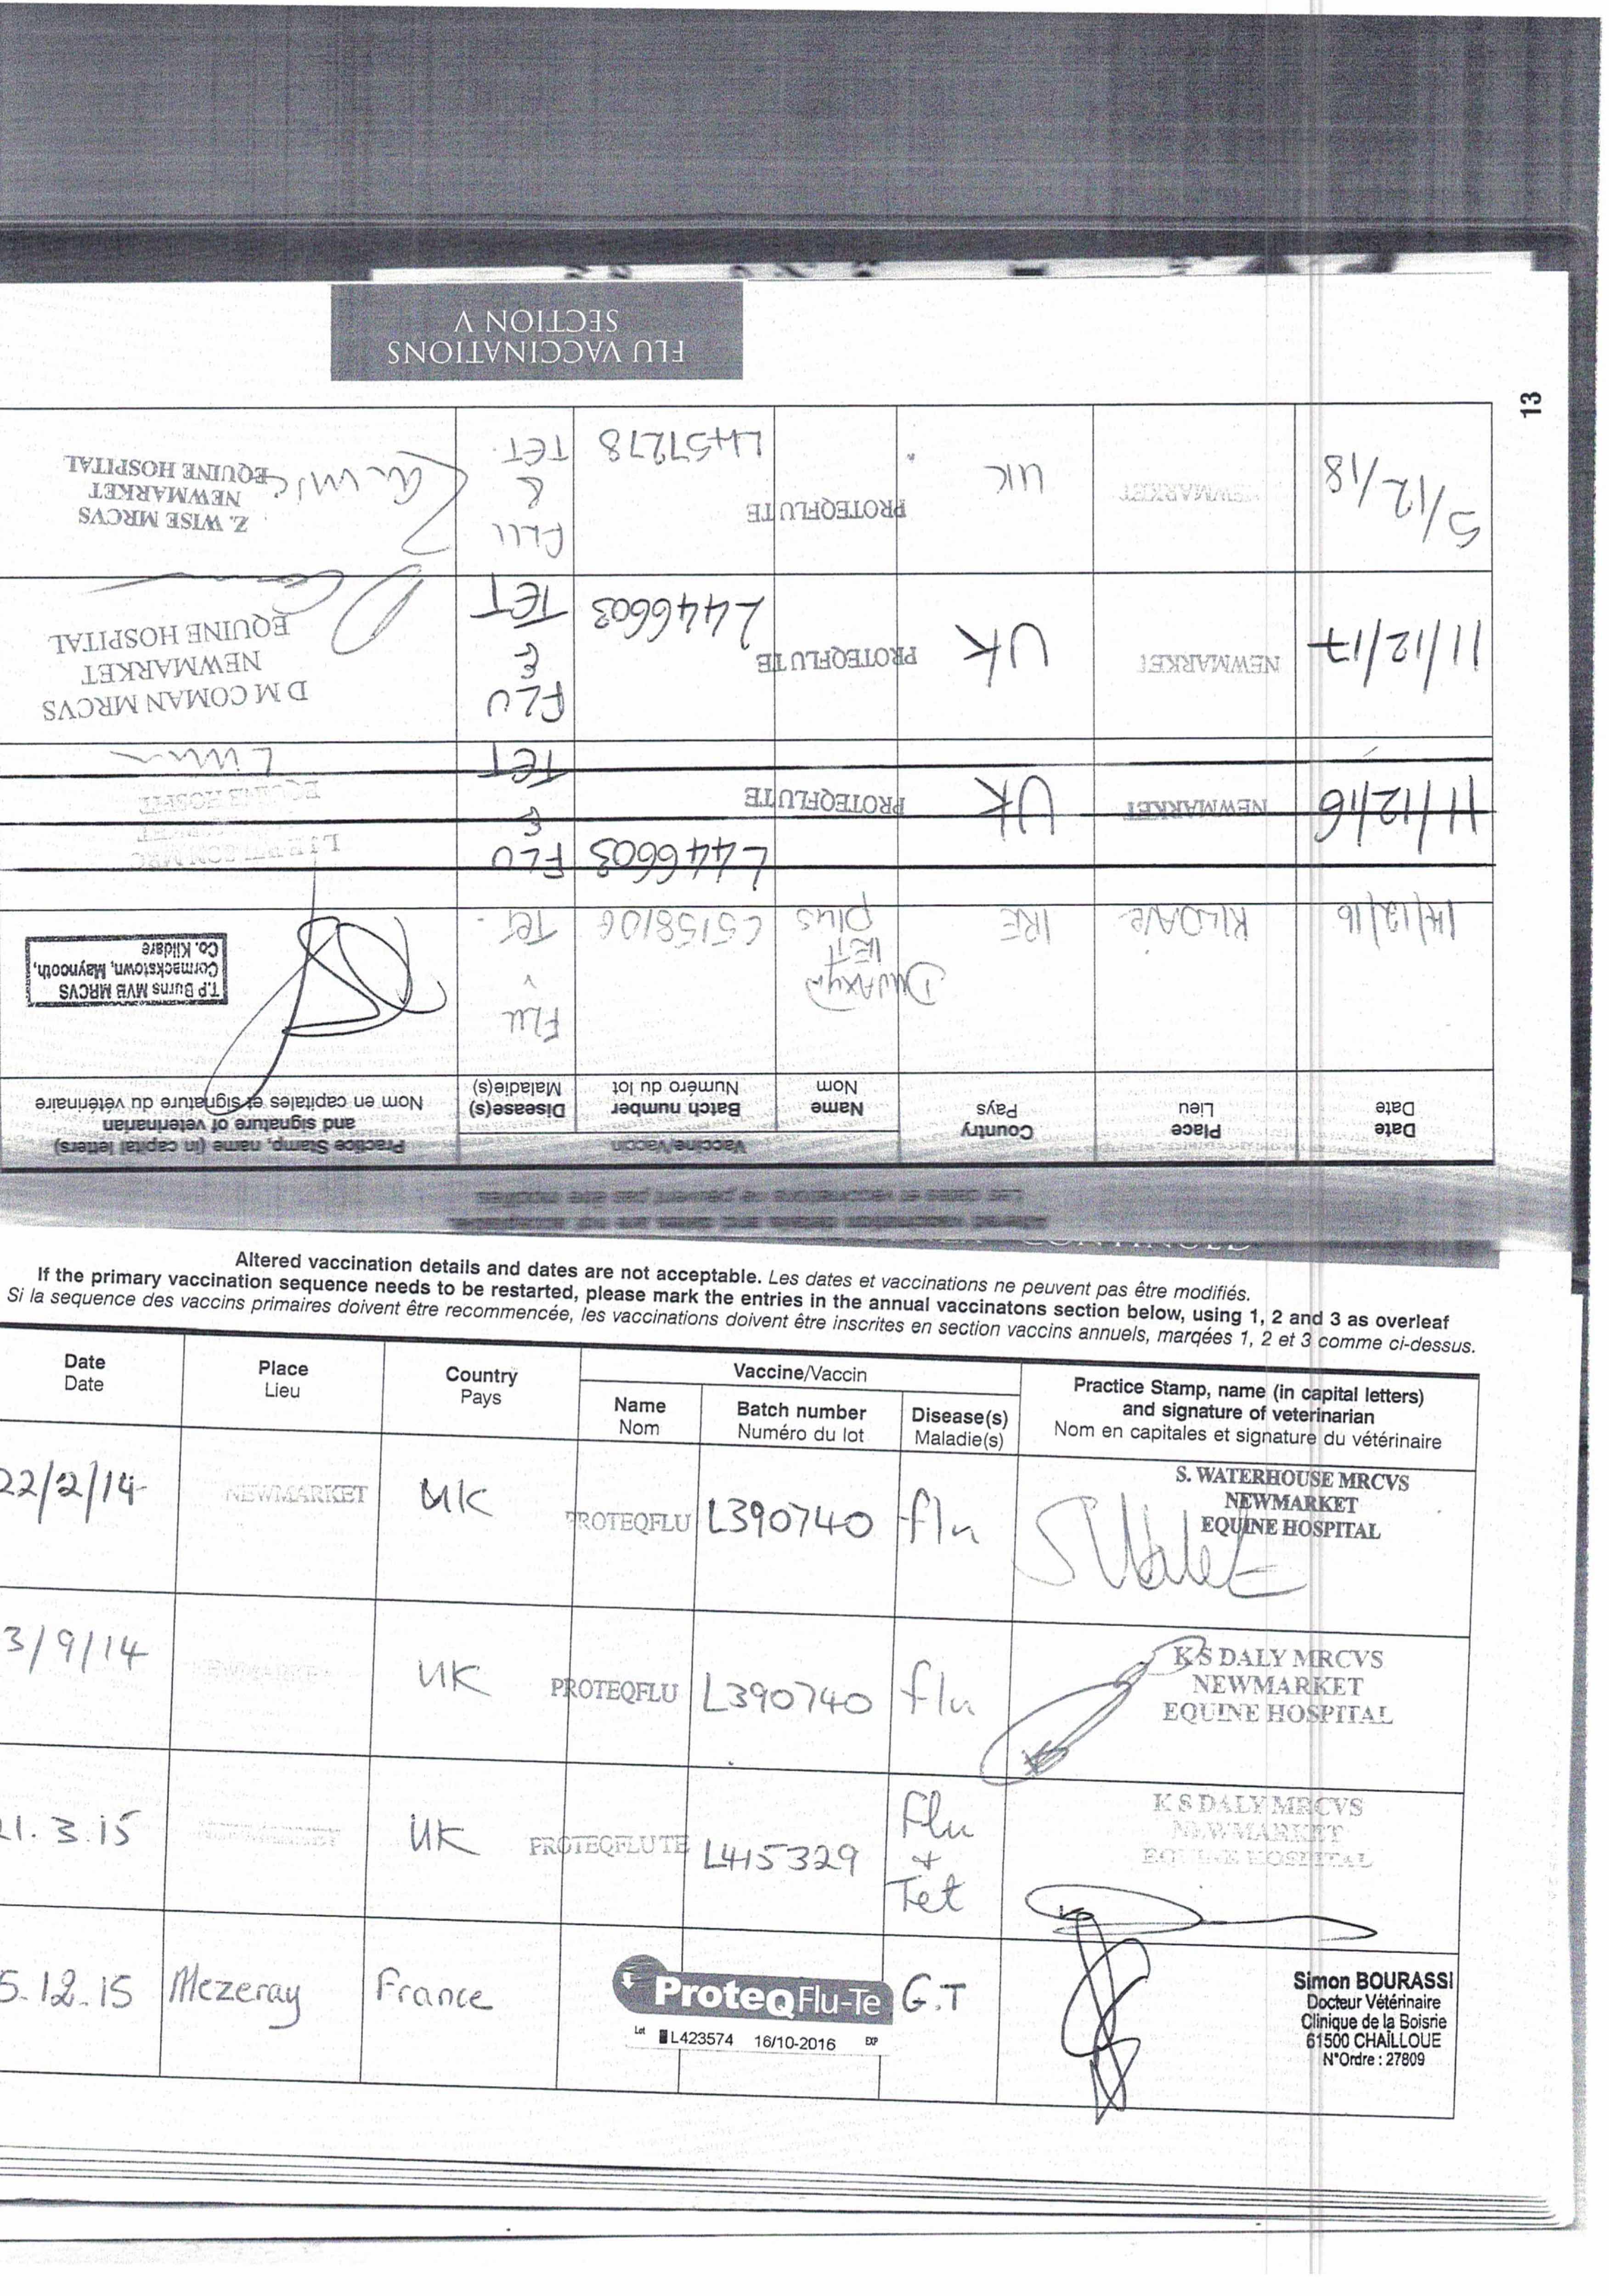 Altered vaccination details and dates are not acceptable. Les dates et vaccinations ne peuvent pas être modifiés.
If the primary vaccination sequence needs to be restarted, please mark the entries in the annual vaccinatons section below, using 1, 2 and 3 as overleaf
Si la sequence des vaccins primaires doivent être recommencée, les vaccinations doivent être inscrites en section vaccins annuels, marqées 1, 2 et 3 comme ci-dessus.
Date Place Country Vaccine/Vaccin Practice Stamp, name (in capital letters)
Date Lieu Pays Name Batch number Disease(s) and signature of veterinarian
Nom Numéro du lot Maladie(s) Nom en capitales et signature du vétérinaire
22/2/14 NEWMARKET UK PROTEQFLU L390740 flu
S. WATERHOUSE MRCVS
NEWMARKET
EQUINE HOSPITAL
3/9/14 NEWMARKET UK PROTEQFLU L390740 flu
K S DALY MRCVS
NEWMARKET
EQUINE HOSPITAL
1.3.15 NEWMARKET UK PROTEQFLUTE L415329 Flu
+
Tet
K S DALY MRCVS
NEWMARKET
EQUINE HOSPITAL
5.12.15 Mezeray France ProteqFlu-Te G.T
Lot L423574 16/10-2016 EXP
Simon BOURASSI
Docteur Vétérinaire
Clinique de la Boisrie
61500 CHAILLOUE
N°Ordre : 27809
Altered vaccination details and dates are not acceptable
Les dates et vaccinations ne peuvent pas être modifiés
Date Place Country Vaccine/Vaccin Practice Stamp, name (in capital letters)
Date Lieu Pays Name Batch number Disease(s) and signature of veterinarian
Nom Numéro du lot Maladie(s) Nom en capitales et signature du vétérinaire
14/12/16 KILDARE IRE Duvaxyn
IET
Plus C515810G Flu
Tet
T.P Burns MVB MRCVS
Cormackstown, Maynooth,
Co. Kildare
11/12/16 NEWMARKET UK PROTEQFLUTE L446603 FLU
&
TET
EQUINE HOSPIT
11/12/17 NEWMARKET UK PROTEQFLUTE L446603 FLU
&
TET
D M COMAN MRCVS
NEWMARKET
EQUINE HOSPITAL
5/12/18 NEWMARKET UK PROTEQFLUTE L457278 FLU
&
TET.
Z. WISE MRCVS
NEWMARKET
EQUINE HOSPITAL
13
FLU VACCINATIONS
SECTION V